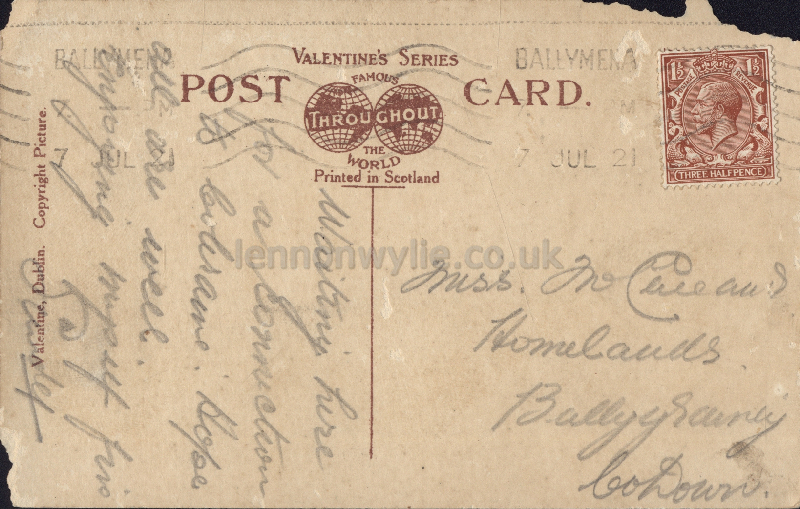 BALLYMENA
7 JUL 21
VALENTINE'S SERIES
POST CARD.
FAMOUS
THROUGHOUT
THE
WORLD
Printed in Scotland
BALLYMENA
7 JUL 21
1½ 1½
POSTAGE REVENUE
THREE HALFPENCE
Valentine, Dublin. Copyright Picture.
Waiting here
for a connection
to Colraine. Hope
all are well.
Enjoying myself fine
lennonwylie.co.uk
Miss.
Homelands
Co Down.